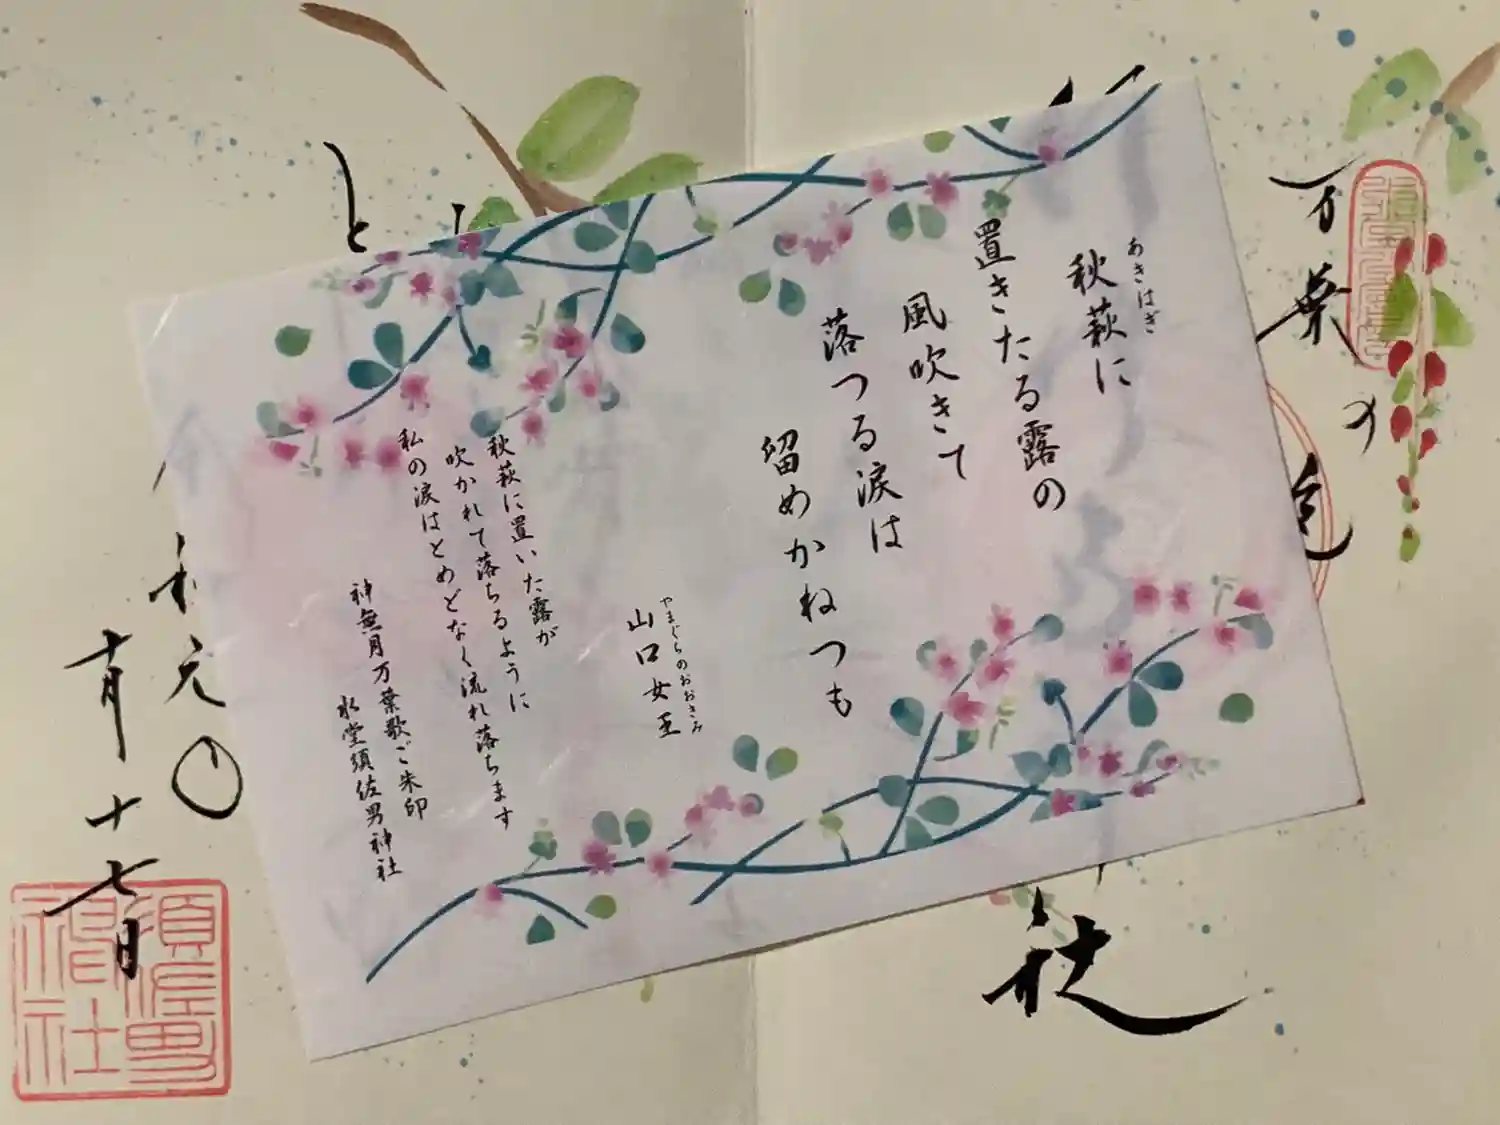 秋萩に
あきはぎ
置きたる露の
風吹きて
落つる涙は
留めかねつも
山口女王
やまぐちのおおきみ
秋萩に置いた露が
吹かれて落ちるように
私の涙はとめどなく流れ落ちます
神無月万葉歌ご朱印
水堂須佐男神社
万葉の
社
と
和元
十月
十七日
須佐男
神社